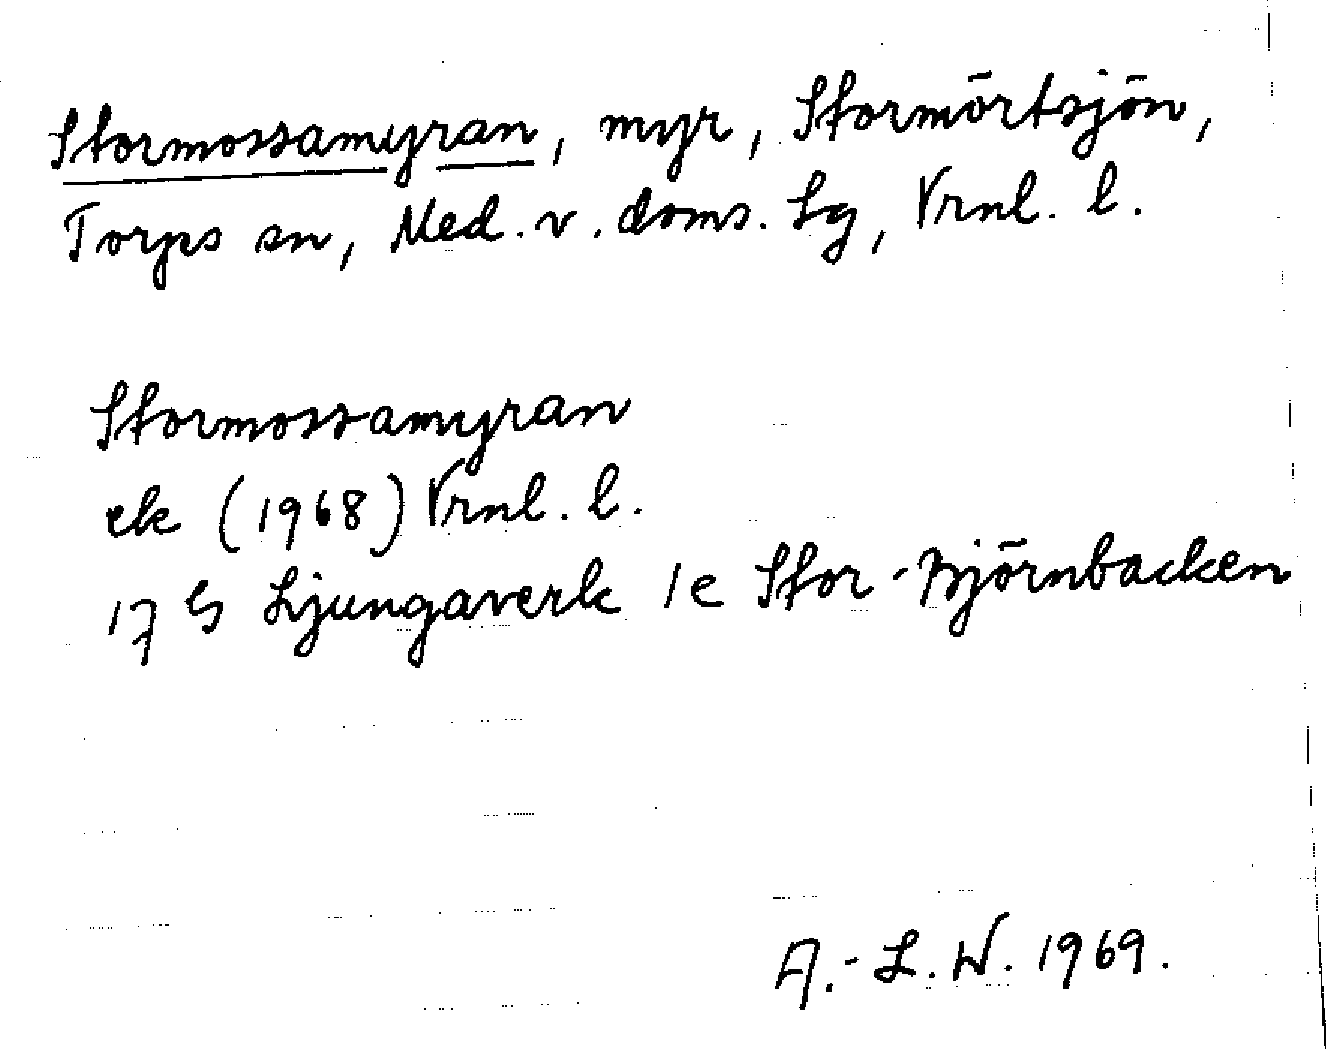 Stormossamyran, myr, Stormörtsjön,
Torps sn, Med. v. doms. Lg, Vrnl. l.
Stormossamyran
ek (1968) Vrnl. l.
17 G Ljungaverk 1e Stor-Björnbacken
A.-L. W. 1969.